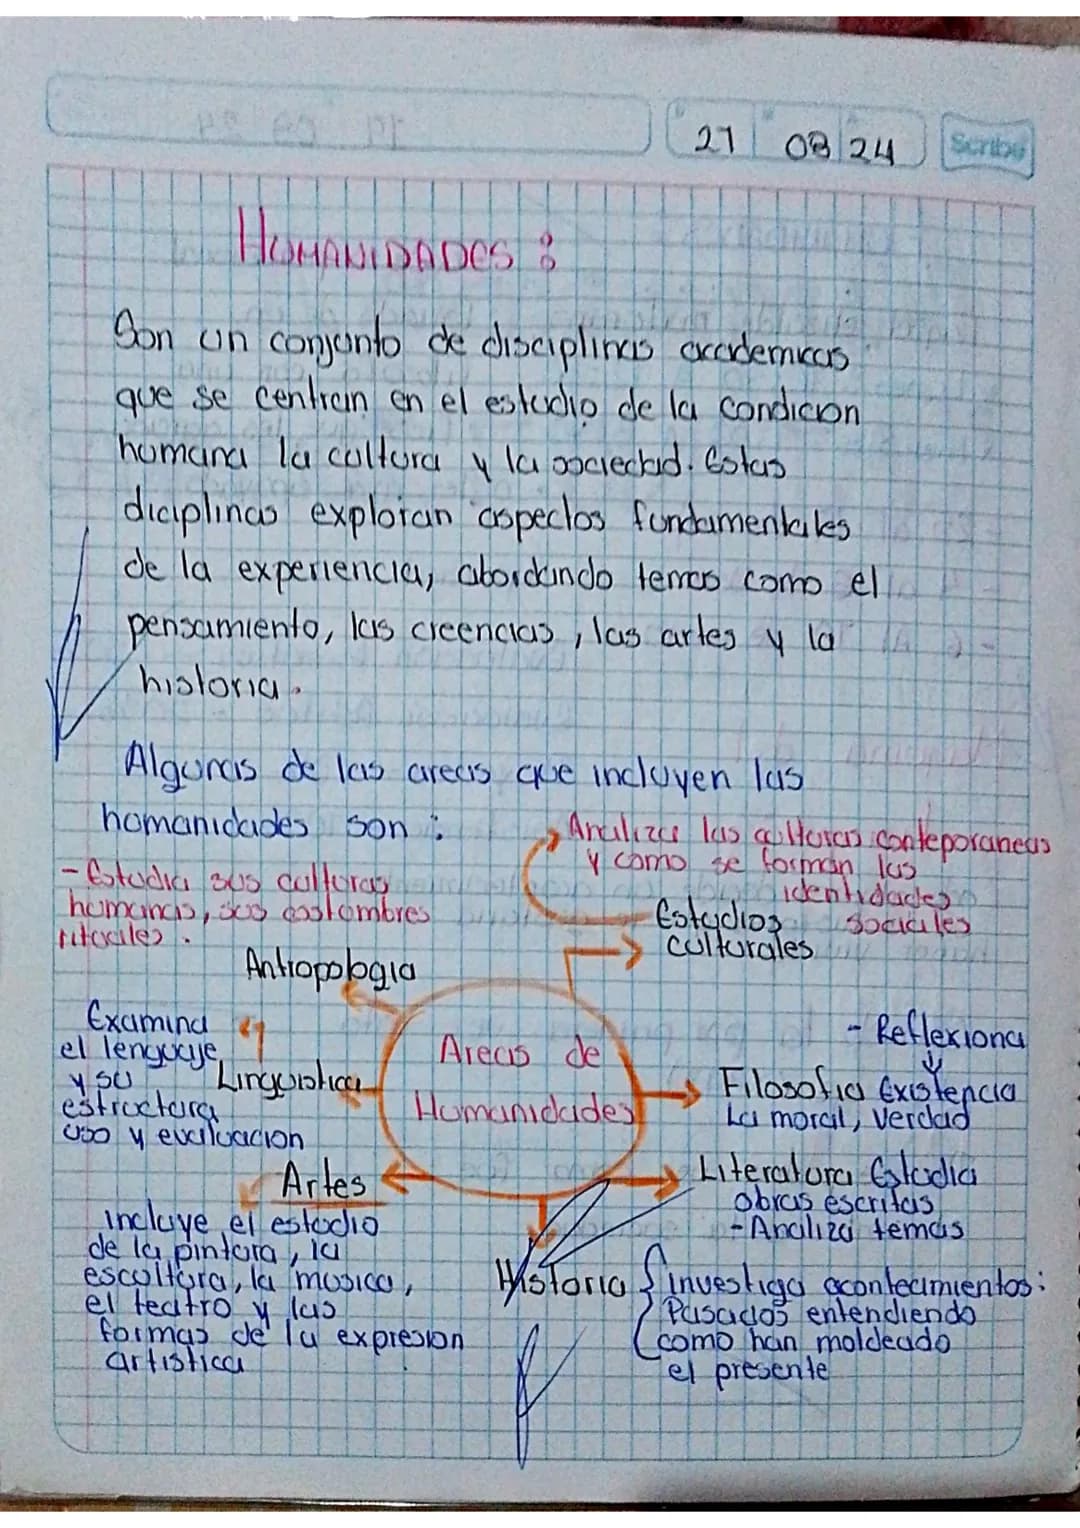 27 08 24
Scribe
HUMANIDADES :
Son un conjunto de disciplinas academicas
que se centran en el estudio de la condicion
humana la cultura y la sociedad. Estas
diciplinas exploran aspectos fundamentales
de la experiencia, abordando temas como el
pensamiento, las creencias, las artes y la
historia.
Algunas de las areas que incluyen las
humanidades son :
Analiza las culturas conteporaneas
y como se forman las
identidades
sociales
Estudios
culturales
- Estudia sus culturas
humanas, sus costumbres
rituales.
Antropologia
Examina
el lenguaje
y su
estructura
uso y evaluacion
Linguistica
Areas de
Humanidades
- Reflexiona
Filosofia Existencia
La moral, verdad
Artes
incluye el estudio
de la pintura, la
escultura, la musica,
el teatro y las
formas de la expresion
artistica
Literatura Estudia
obras escritas
- Analiza temas
Historia investiga acontecimientos:
Pasados entendiendo
como han moldeado
el presente